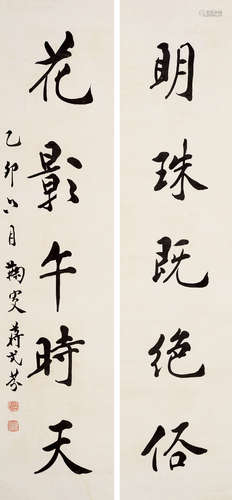 明珠既絕俗
花影午時天
乙卯六月 鞠叟蔣式芬